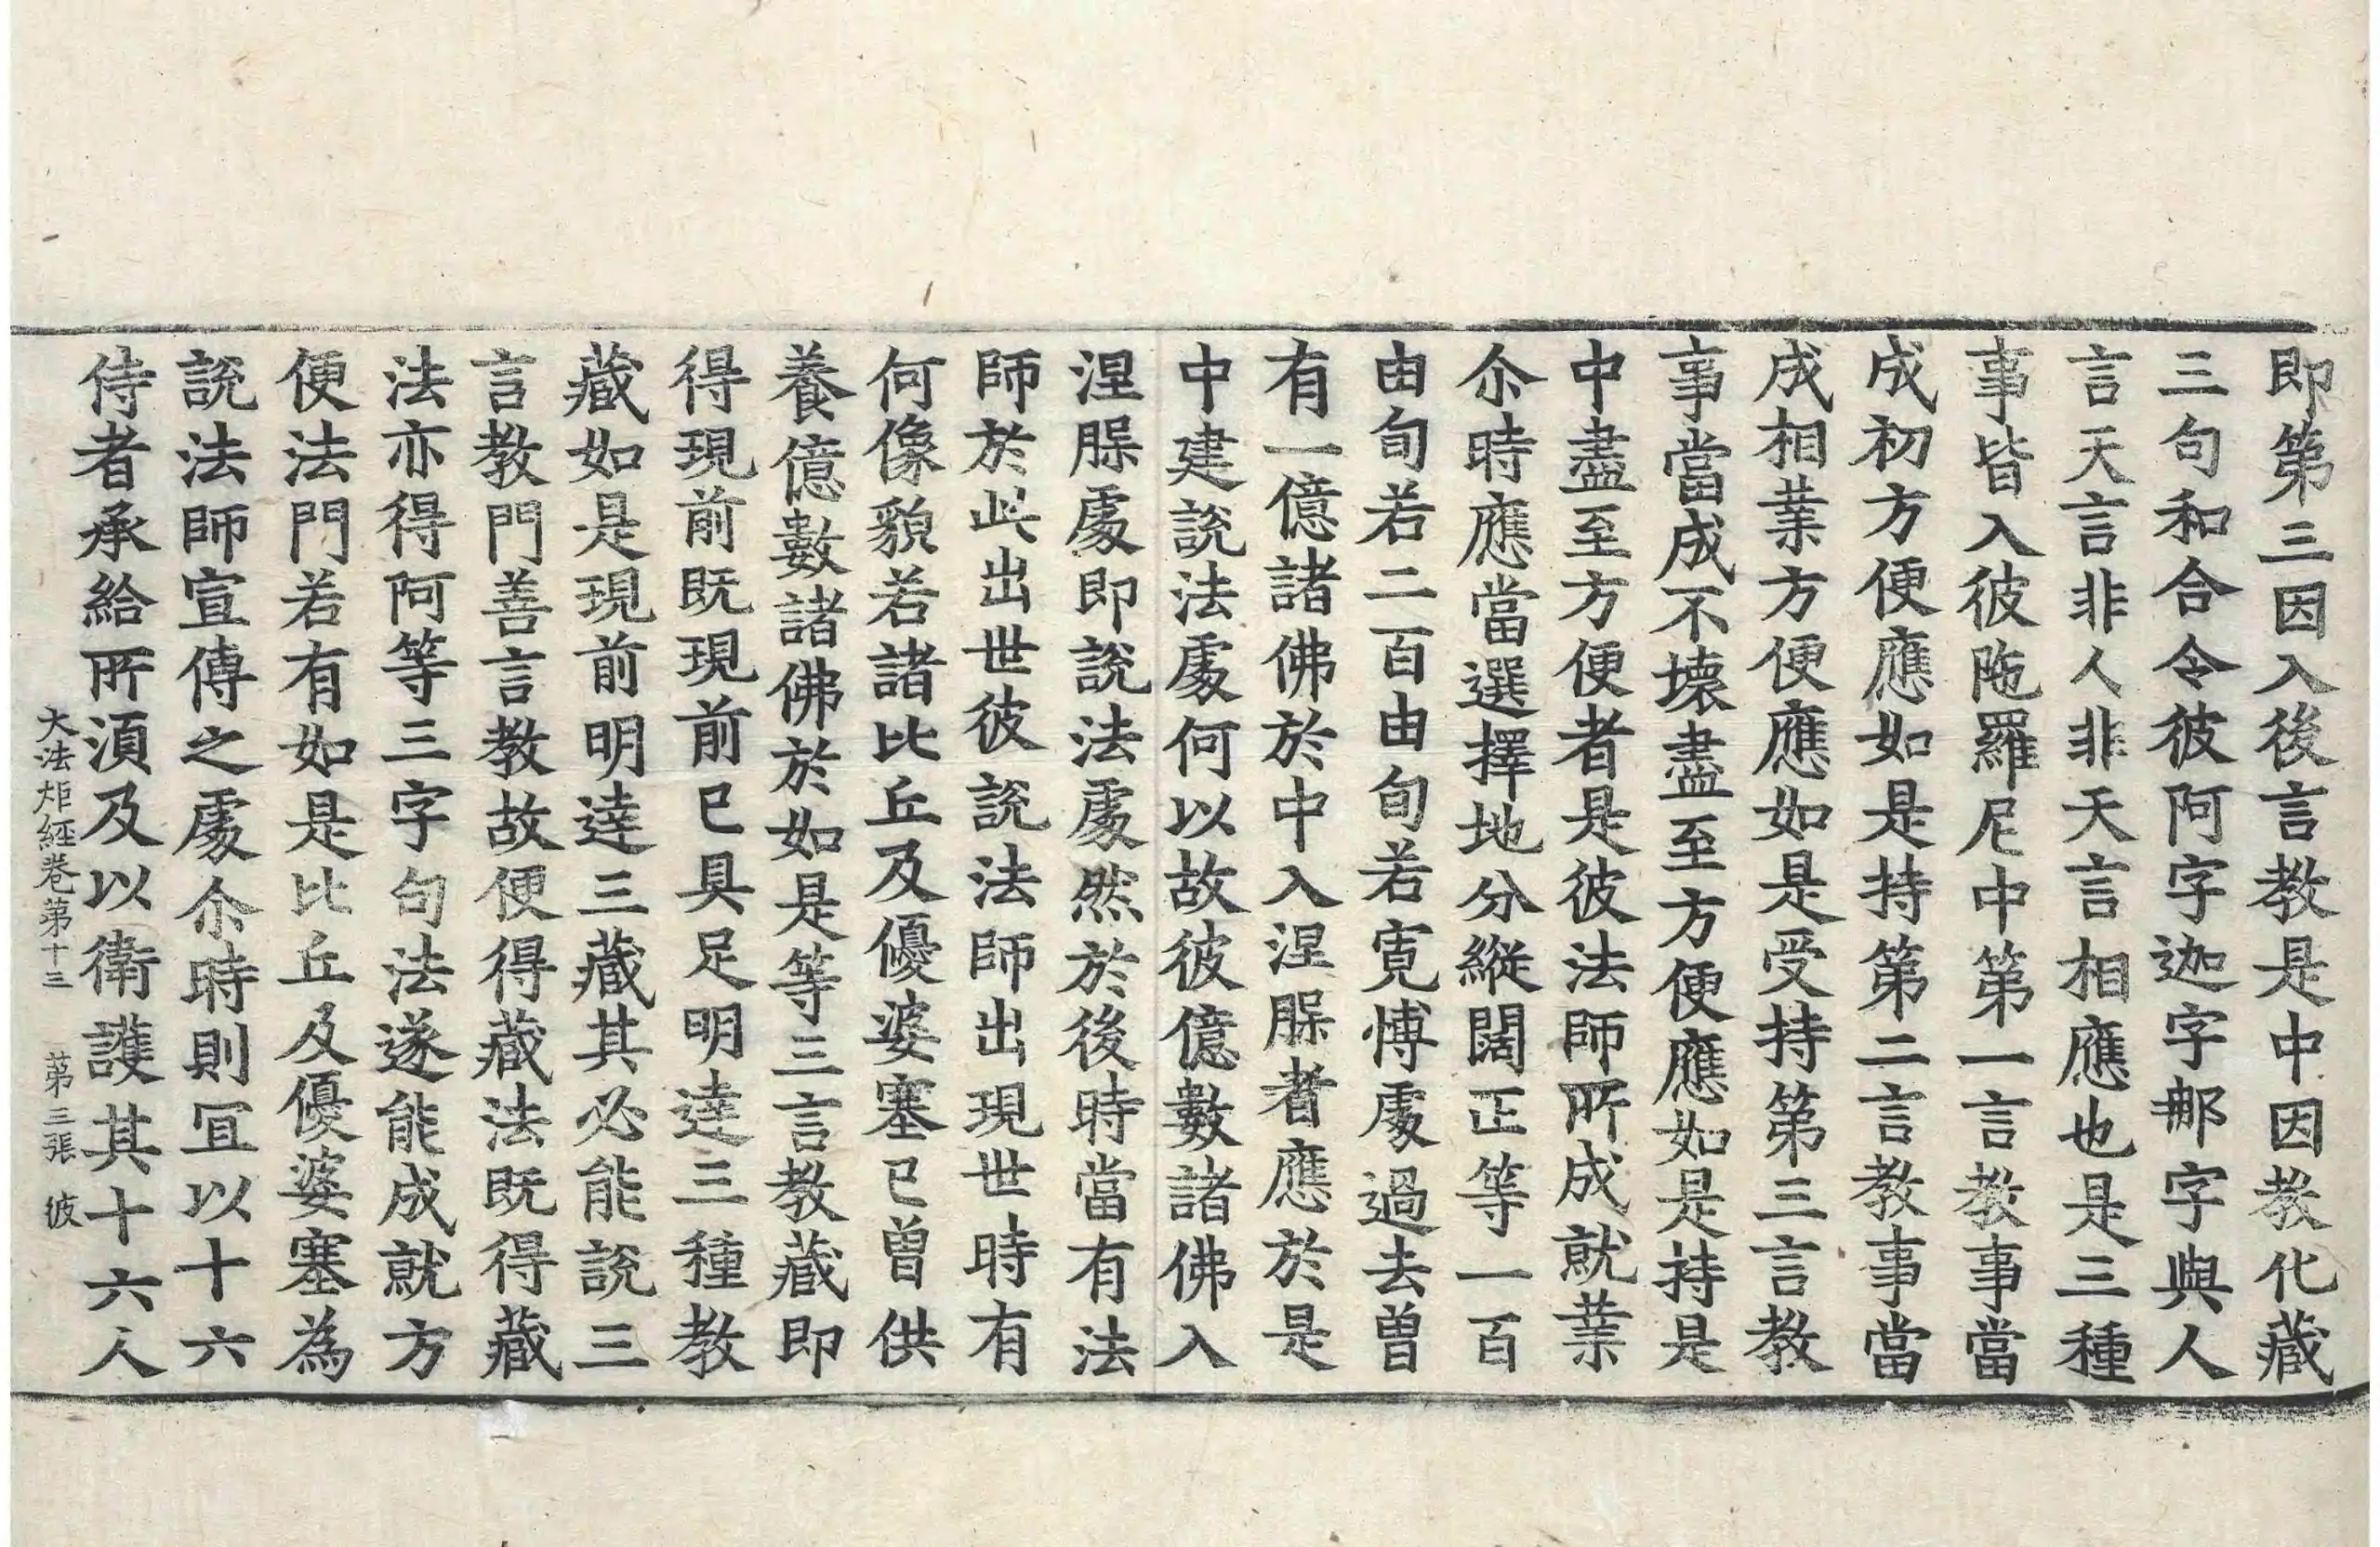 即第三因入後言教是中因教化藏
三句和合令彼阿字迦字那字與人
言天言非人非天言相應也是三種
事皆入彼陁羅尼中第一言教事當
成初方便應如是持第二言教事當
成相業方便應如是受持第三言教
事當成不壞盡至方便應如是持是
中盡至方便者是彼法師所成就業
尒時應當選擇地分縱闊正等一百
由旬若二百由旬若寬愽處過去曾
有一億諸佛於中入涅脲者應於是
中建說法處何以故彼億數諸佛入
涅脲處即說法處然於後時當有法
師於此出世彼說法師出現世時有
何像貌若諸比丘及優婆塞已曾供
養億數諸佛於如是等三言教藏即
得現前既現前已具足明達三種教
藏如是現前明達三藏其必能說三
言教門善言教故便得藏法既得藏
法亦得阿等三字句法遂能成就方
便法門若有如是比丘及優婆塞為
說法師宣傳之處尒時則冝以十六
侍者承給所湏及以衛護其十六人
大法炬經卷第十三 第三張 彼